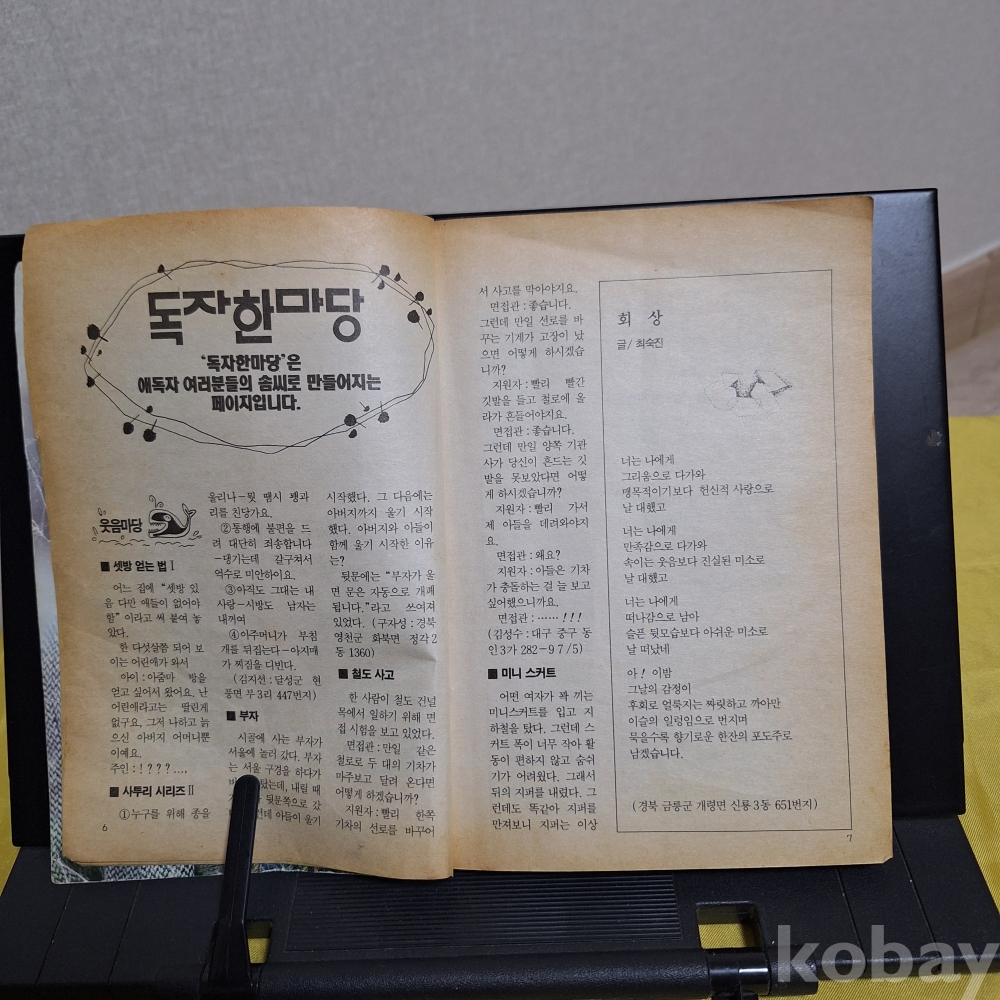 독자한마당
“독자한마당”은
애독자 여러분들의 솜씨로 만들어지는
페이지입니다.
웃음마당
■ 셋방 얻는 법 I
어느 집에 “셋방 있
음 다만 애들이 없어야
함” 이라고 써 붙여 놓
았다.
한 다섯살쯤 되어 보
이는 어린애가 와서
아이 : 아줌마 방을
얻고 싶어서 왔어요. 난
어린애라고는 딸린게
없구요, 그저 나하고 늙
으신 아버지 어머니뿐
이예요.
주인 : ! ? ? ? …,
■ 사투리 시리즈 II
①누구를 위해 종을
6
울리나-뭣 땜시 꽹과
리를 친당가요.
②통행에 불편을 드
려 대단히 죄송합니다
-댕기는데 걸구쳐서
억수로 미안하이요.
③아직도 그대는 내
사랑-시방도 남자는
내꺼여
④아주머니가 부침
개를 뒤집는다-아지매
가 찌짐을 디빈다.
(김지선 : 달성군 현
풍면 부 3리 447번지)
■ 부자
시골에 사는 부자가
서울에 놀러 갔다. 부자
는 서울 구경을 하다가
탔는데, 내릴 때
뒷문쪽으로 갔
런데 아들이 울기
시작했다. 그 다음에는
아버지까지 울기 시작
했다. 아버지와 아들이
함께 울기 시작한 이유
는?
뒷문에는 “부자가 울
면 문은 자동으로 개폐
됩니다.”라고 쓰여져
있었다. (구자성 : 경북
영천군 화북면 정각 2
동 1360)
■ 철도 사고
한 사람이 철도 건널
목에서 일하기 위해 면
접 시험을 보고 있었다.
면접관 : 만일 같은
철로로 두 대의 기차가
마주보고 달려 온다면
어떻게 하겠습니까?
지원자 : 빨리 한쪽
기차의 선로를 바꾸어
서 사고를 막아야지요.
면접관 : 좋습니다.
그런데 만일 선로를 바
꾸는 기계가 고장이 났
으면 어떻게 하시겠습
니까?
지원자 : 빨리 빨간
깃발을 들고 철로에 올
라가 흔들어야지요.
면접관 : 좋습니다.
그런데 만일 양쪽 기관
사가 당신이 흔드는 깃
발을 못보았다면 어떻
게 하시겠습니까?
지원자 : 빨리 가서
제 아들을 데려와야지
요.
면접관 : 왜요?
지원자 : 아들은 기차
가 충돌하는 걸 늘 보고
싶어했으니까요.
면접관 : …… ! ! !
(김성수 : 대구 중구 동
인 3가 282-9 7 / 5)
■ 미니 스커트
어떤 여자가 꽉 끼는
미니스커트를 입고 지
하철을 탔다. 그런데 스
커트 폭이 너무 작아 활
동이 편하지 않고 숨쉬
기가 어려웠다. 그래서
뒤의 지퍼를 내렸다. 그
런데도 똑같아 지퍼를
만져보니 지퍼는 이상
회 상
글 / 최숙진
너는 나에게
그리움으로 다가와
맹목적이기보다 헌신적 사랑으로
날 대했고
너는 나에게
만족감으로 다가와
속이는 웃음보다 진실된 미소로
날 대했고
너는 나에게
떠나감으로 남아
슬픈 뒷모습보다 아쉬운 미소로
날 떠났네
아 ! 이밤
그날의 감정이
후회로 얼룩지는 짜릿하고 까아만
이슬의 일렁임으로 번지며
묵을수록 향기로운 한잔의 포도주로
남겠습니다.
(경북 금릉군 개령면 신룡 3동 651번지)
7
kobay